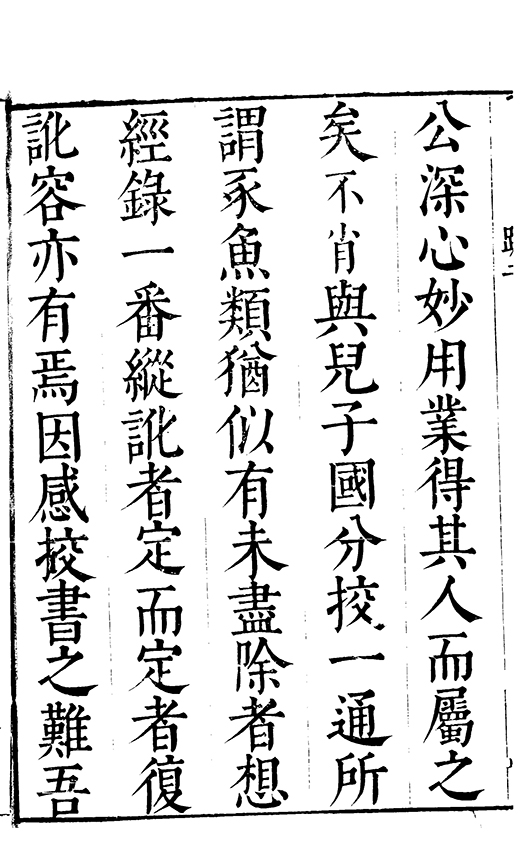 公深心妙用業得其人而屬之
矣不肖與兒子國分挍一通所
謂豕魚類猶似有未盡除者想
經錄一番縱訛者定而定者復
訛容亦有焉因感挍書之難吾